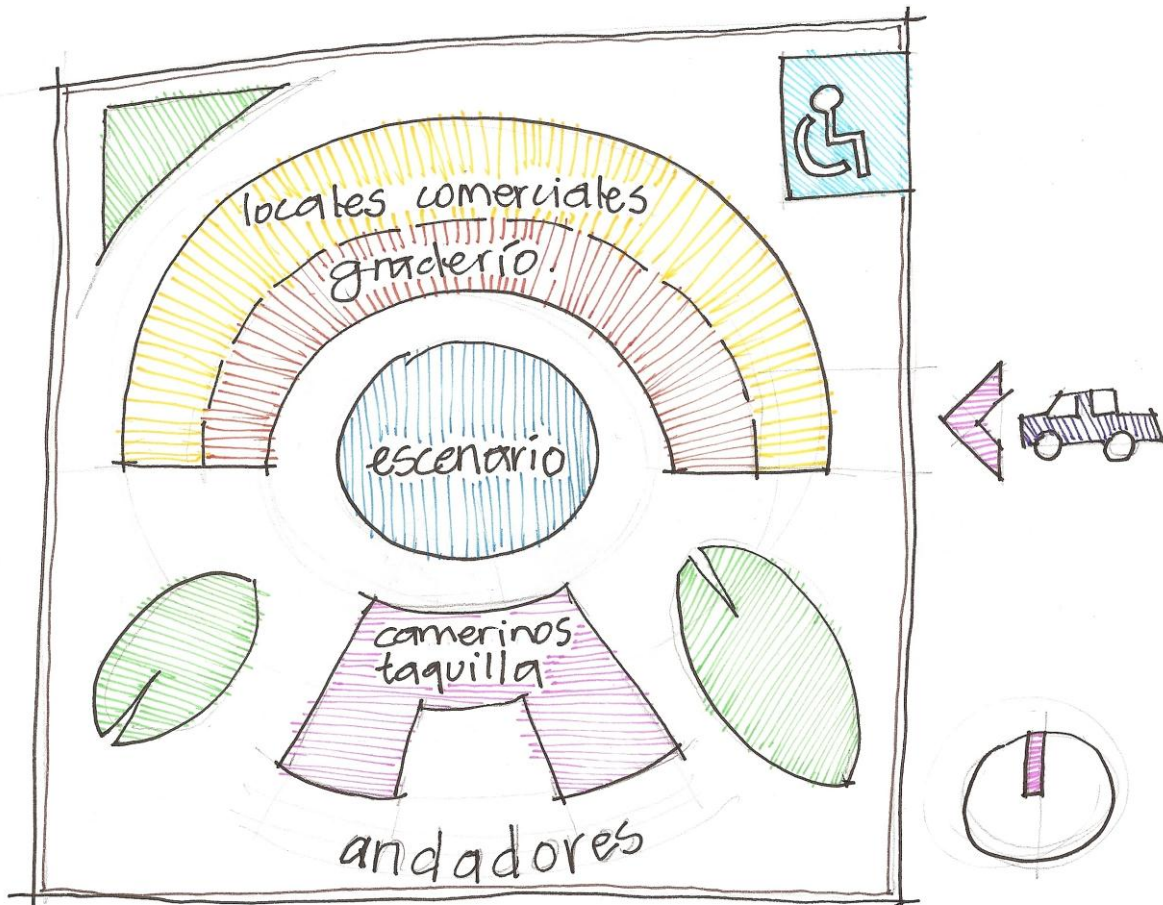 locales comerciales
graderío.
escenario
camerinos
taquilla
andadores